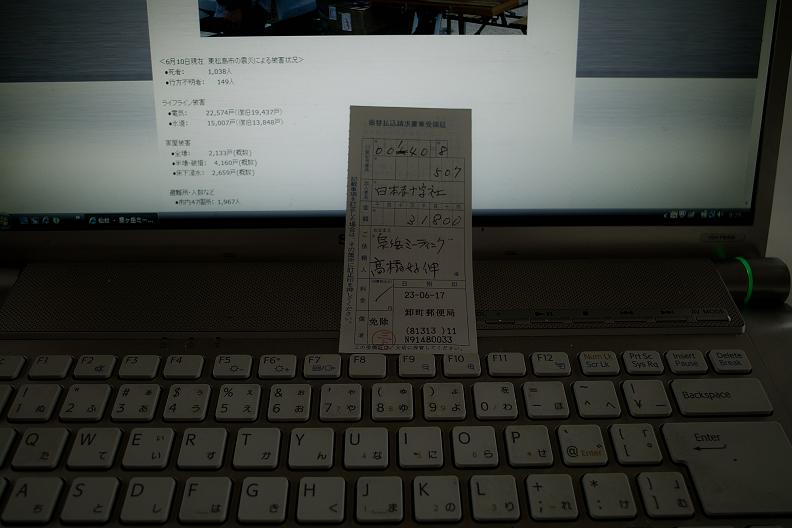 <6月10日現在 東松島市の震災による被害状況>
●死者: 1,038人
●行方不明者: 149人
ライフライン被害
●電気: 22,574戸(復旧19,437戸)
●水道: 15,007戸(復旧13,848戸)
家屋被害
●全壊: 2,133戸(概数)
●半壊・破損: 4,160戸(概数)
●床下浸水: 2,659戸(概数)
避難所・人数など
●市内47箇所: 1,967人
振替払込請求書兼受領証
00140 8
507
日本赤十字社
金額
31800
ご依頼人
泉岳ミーティング
様
料金
日附印
23-06-17
卸町郵便局
備考
免除
(81313)11
N91480033
記載事項を訂正した場合は、その箇所に訂正印を押してください。
AV MODE
F1 F2 F3 F4 F5 F6 F7 F8 F9 F10 F11 F12 Num Lk Scr Lk Prt Sc Sys Rq Insert Pause Delete Break
Backspace
Q W E R T Y U I O P @ Enter
A S D F G H J K L